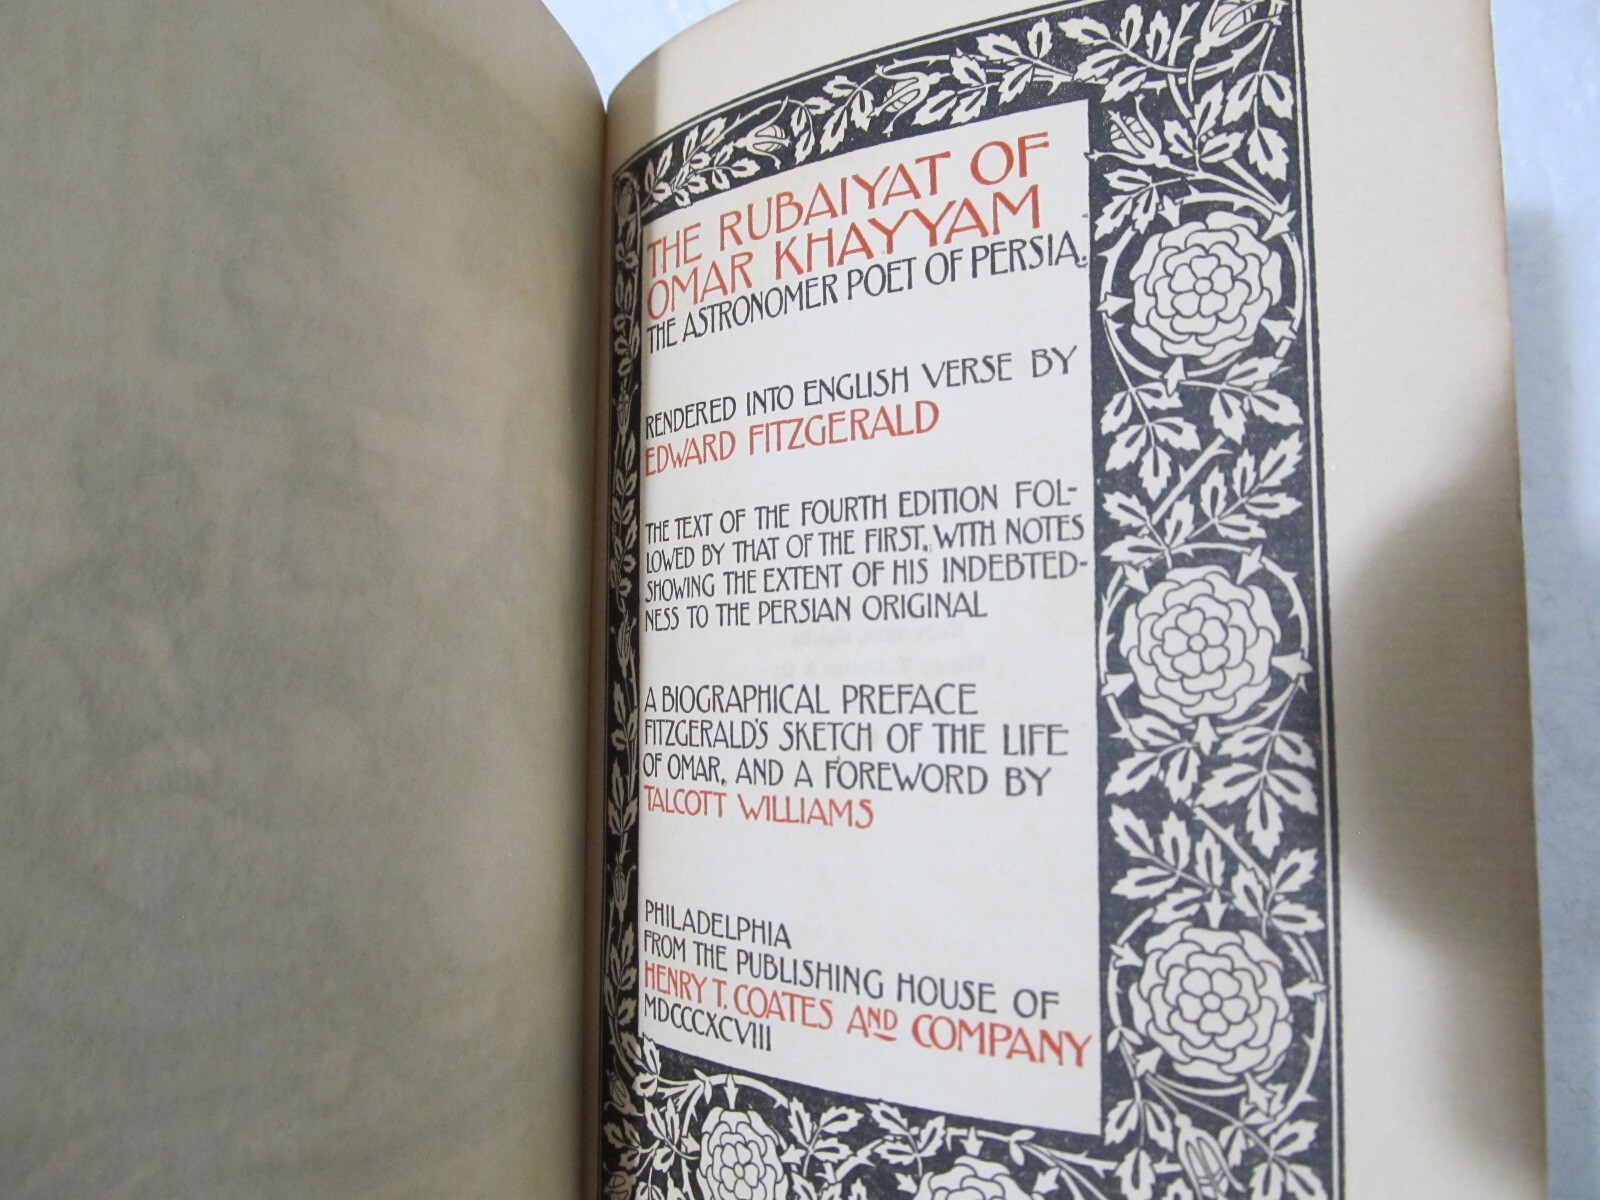 THE RUBAIYAT OF
OMAR KHAYYAM
THE ASTRONOMER POET OF PERSIA.
RENDERED INTO ENGLISH VERSE BY
EDWARD FITZGERALD
THE TEXT OF THE FOURTH EDITION FOL-
LOWED BY THAT OF THE FIRST, WITH NOTES
SHOWING THE EXTENT OF HIS INDEBTED-
NESS TO THE PERSIAN ORIGINAL
A BIOGRAPHICAL PREFACE
FITZGERALD'S SKETCH OF THE LIFE
OF OMAR, AND A FOREWORD BY
TALCOTT WILLIAMS
PHILADELPHIA
FROM THE PUBLISHING HOUSE OF
HENRY T. COATES AND COMPANY
MDCCCXCVIII